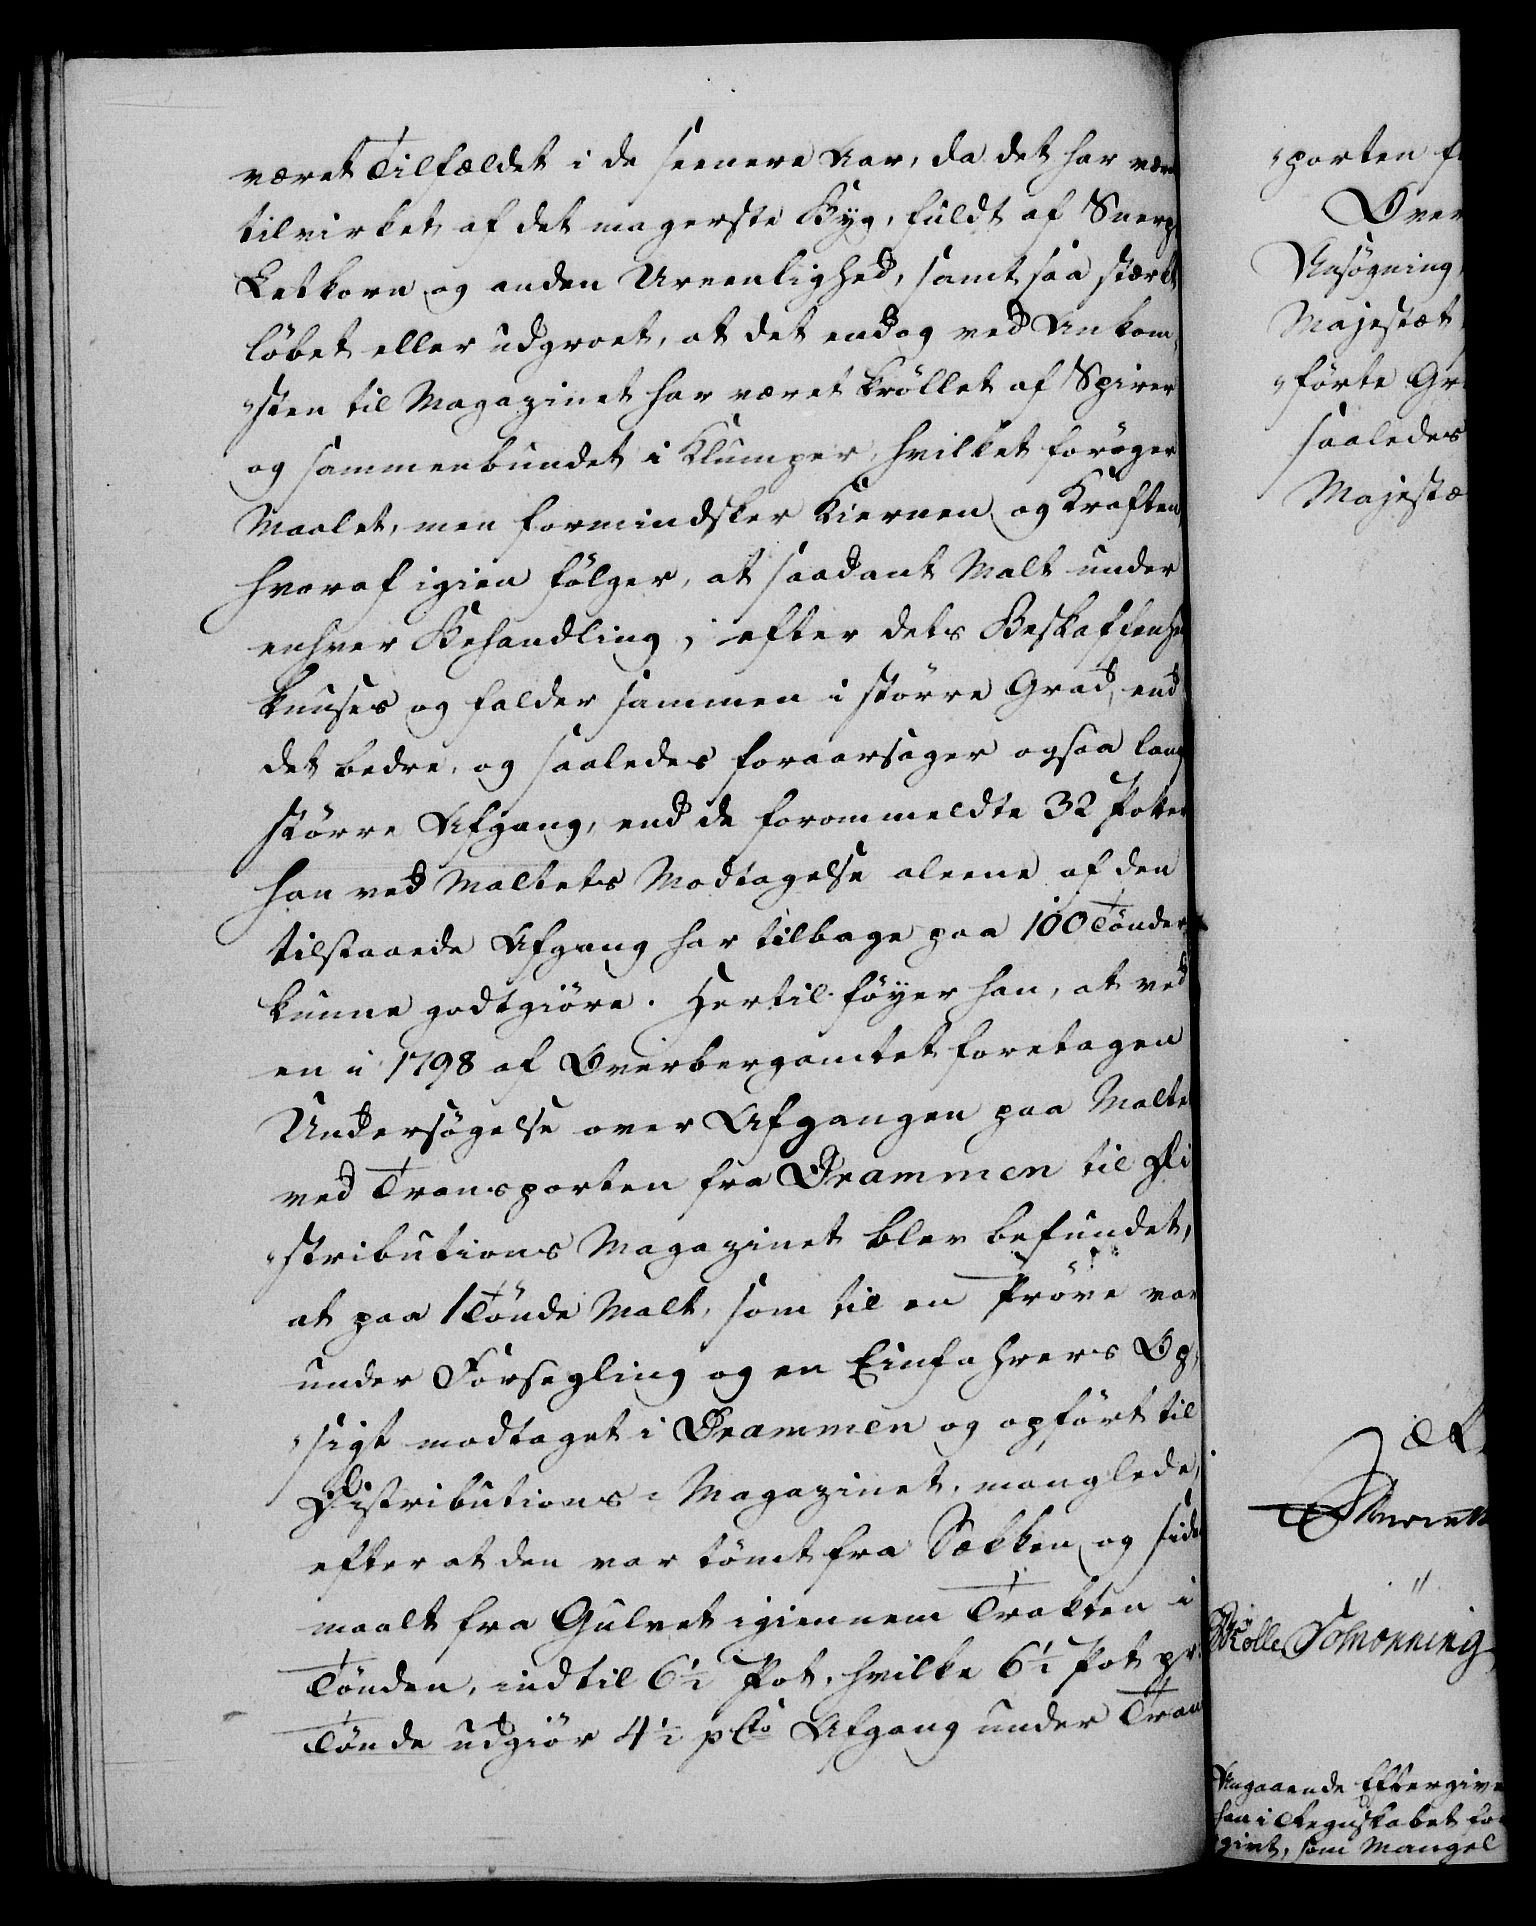 været Tilfældet i de seenere Aar, da det har vær
tilvirket af det magerste Byg, fuldt af Snerp
Letkorn og anden Ureenlighed, samt saa stærkt
löbet eller udgroet, at det endog ved Ankom„
„sten til Magazinet har været kröllet af Spirer
og sammenbundet i Klumper, hvilket foröger
Maalet, men formindsker Kiernen og Kraften,
hvoraf igien fölger, at saadant Malt under
enhver Behandling, efter dets Beskaffenhe
knuses og falder sammen i större Grad, end
det bedre, og saaledes foraarsager ogsaa lang
större Afgang, end de forommeldte 32 Potter
han ved Maltets Modtagelse aleene af den
tilstaaede Afgang har tilbage paa 100 Tönder
kunne godtgiöre. Hertil föyer han, at ved
en i 1798 af Overbergamtet foretagen
Undersögelse over Afgangen paa Malte
ved Transporten fra Drammen til Di
„stributions Magazinet blev befundet,
at paa 1 Tönde Malt, som til en Pröve var
under Forsegling og en Einfahrers Op„
„sigt modtaget i Drammen og opfört til
Distributions-Magazinet, manglede,
efter at den var tömt fra Sækken og side
maalt fra Gulvet igiennem Trakten i
Tönden, indtil 6½ Pot, hvilke 6½ Pot pr
Tönde udgiör 4½ pCto Afgang under Tran
„porten f
Over
Ansögning,
Majestæt
„förte Gr
saaledes
Majestæ
Schönning
Angaaende Eftergive
han i Regnskabet fo
givet, som Mangel